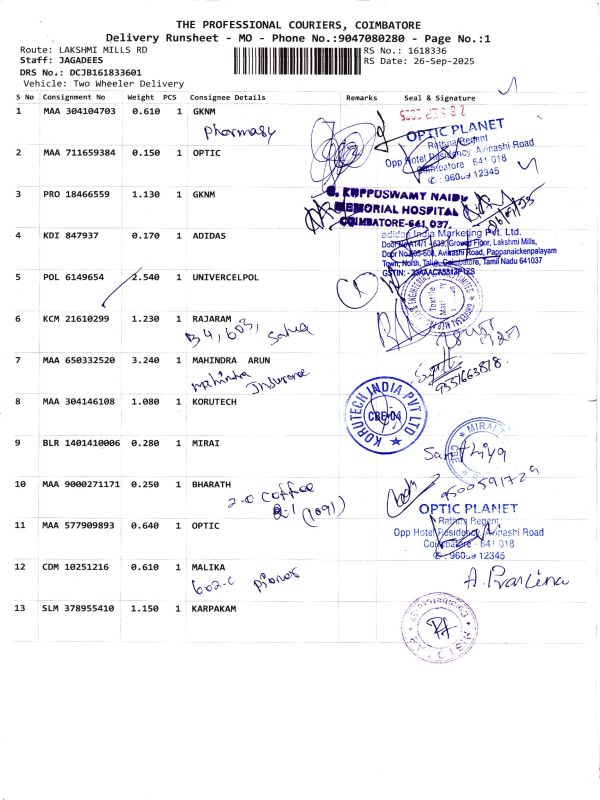 THE PROFESSIONAL COURIERS, COIMBATORE
Delivery Runsheet - MO - Phone No.:9047080280 - Page No.:1
Route: LAKSHMI MILLS RD
RS No.: 1618336
Staff: JAGADEES
RS Date: 26-Sep-2025
DRS No.: DCJB161833601
Vehicle: Two Wheeler Delivery
S No Consignment No Weight PCS Consignee Details Remarks Seal & Signature
1 MAA 304104703 0.610 1 GKNM
pharmasy
26 SEP 2025
OPTIC PLANET
Rathna Regent
Opp Hotel Residency Avinashi Road
Coimbatore 641 018
✆ : 96009 12345
2 MAA 711659384 0.150 1 OPTIC
3 PRO 18466559 1.130 1 GKNM
G. KUPPUSWAMY NAIDU
MEMORIAL HOSPITAL
COIMBATORE-641 037.
4 KDI 847937 0.170 1 ADIDAS
adidas India Marketing Pvt. Ltd.
Ground Floor, Lakshmi Mills,
Avinashi Road, Pappanaickenpalayam
Town, North, Taluk, Coimbatore, Tamil Nadu 641037
GSTIN:
5 POL 6149654 2.540 1 UNIVERCELPOL
6 KCM 21610299 1.230 1 RAJARAM
B4, 603,
7 MAA 650332520 3.240 1 MAHINDRA ARUN
mahindra Insurance
8 MAA 304146108 1.080 1 KORUTECH
KORUTECH INDIA PVT LTD
CBE-04
9 BLR 1401410006 0.280 1 MIRAI
MIRAI
CBE
Santhiya
9500591729
10 MAA 9000271171 0.250 1 BHARATH
2-0 Coffee
(1091)
11 MAA 577909893 0.640 1 OPTIC
OPTIC PLANET
Rathna Regent
Opp Hotel Residency Avinashi Road
Coimbatore - 641 018
✆ : 96009 12345
12 CDM 10251216 0.610 1 MALIKA
602-C
13 SLM 378955410 1.150 1 KARPAKAM